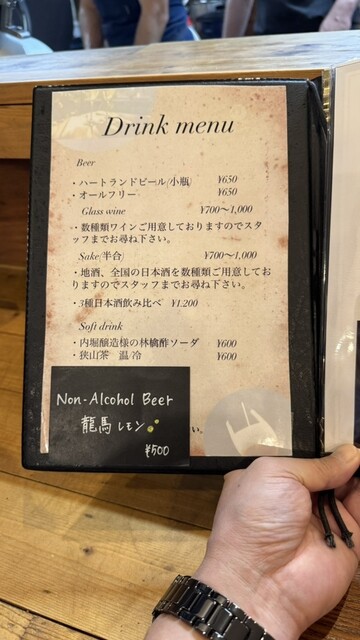 Drink menu
Beer
・ハートランドビール(小瓶) ¥650
・オールフリー ¥650
Glass wine ¥700〜1,000
・数種類ワインご用意しておりますのでスタ
ッフまでお尋ね下さい。
Sake(半合) ¥700〜1,000
・地酒、全国の日本酒を数種類ご用意してお
りますのでスタッフまでお尋ね下さい。
・3種日本酒飲み比べ ¥1.200
Soft drink
・内堀醸造様の林檎酢ソーダ ¥600
・狭山茶 温/冷 ¥600
い。
Non-Alcohol Beer
龍馬レモン
¥500